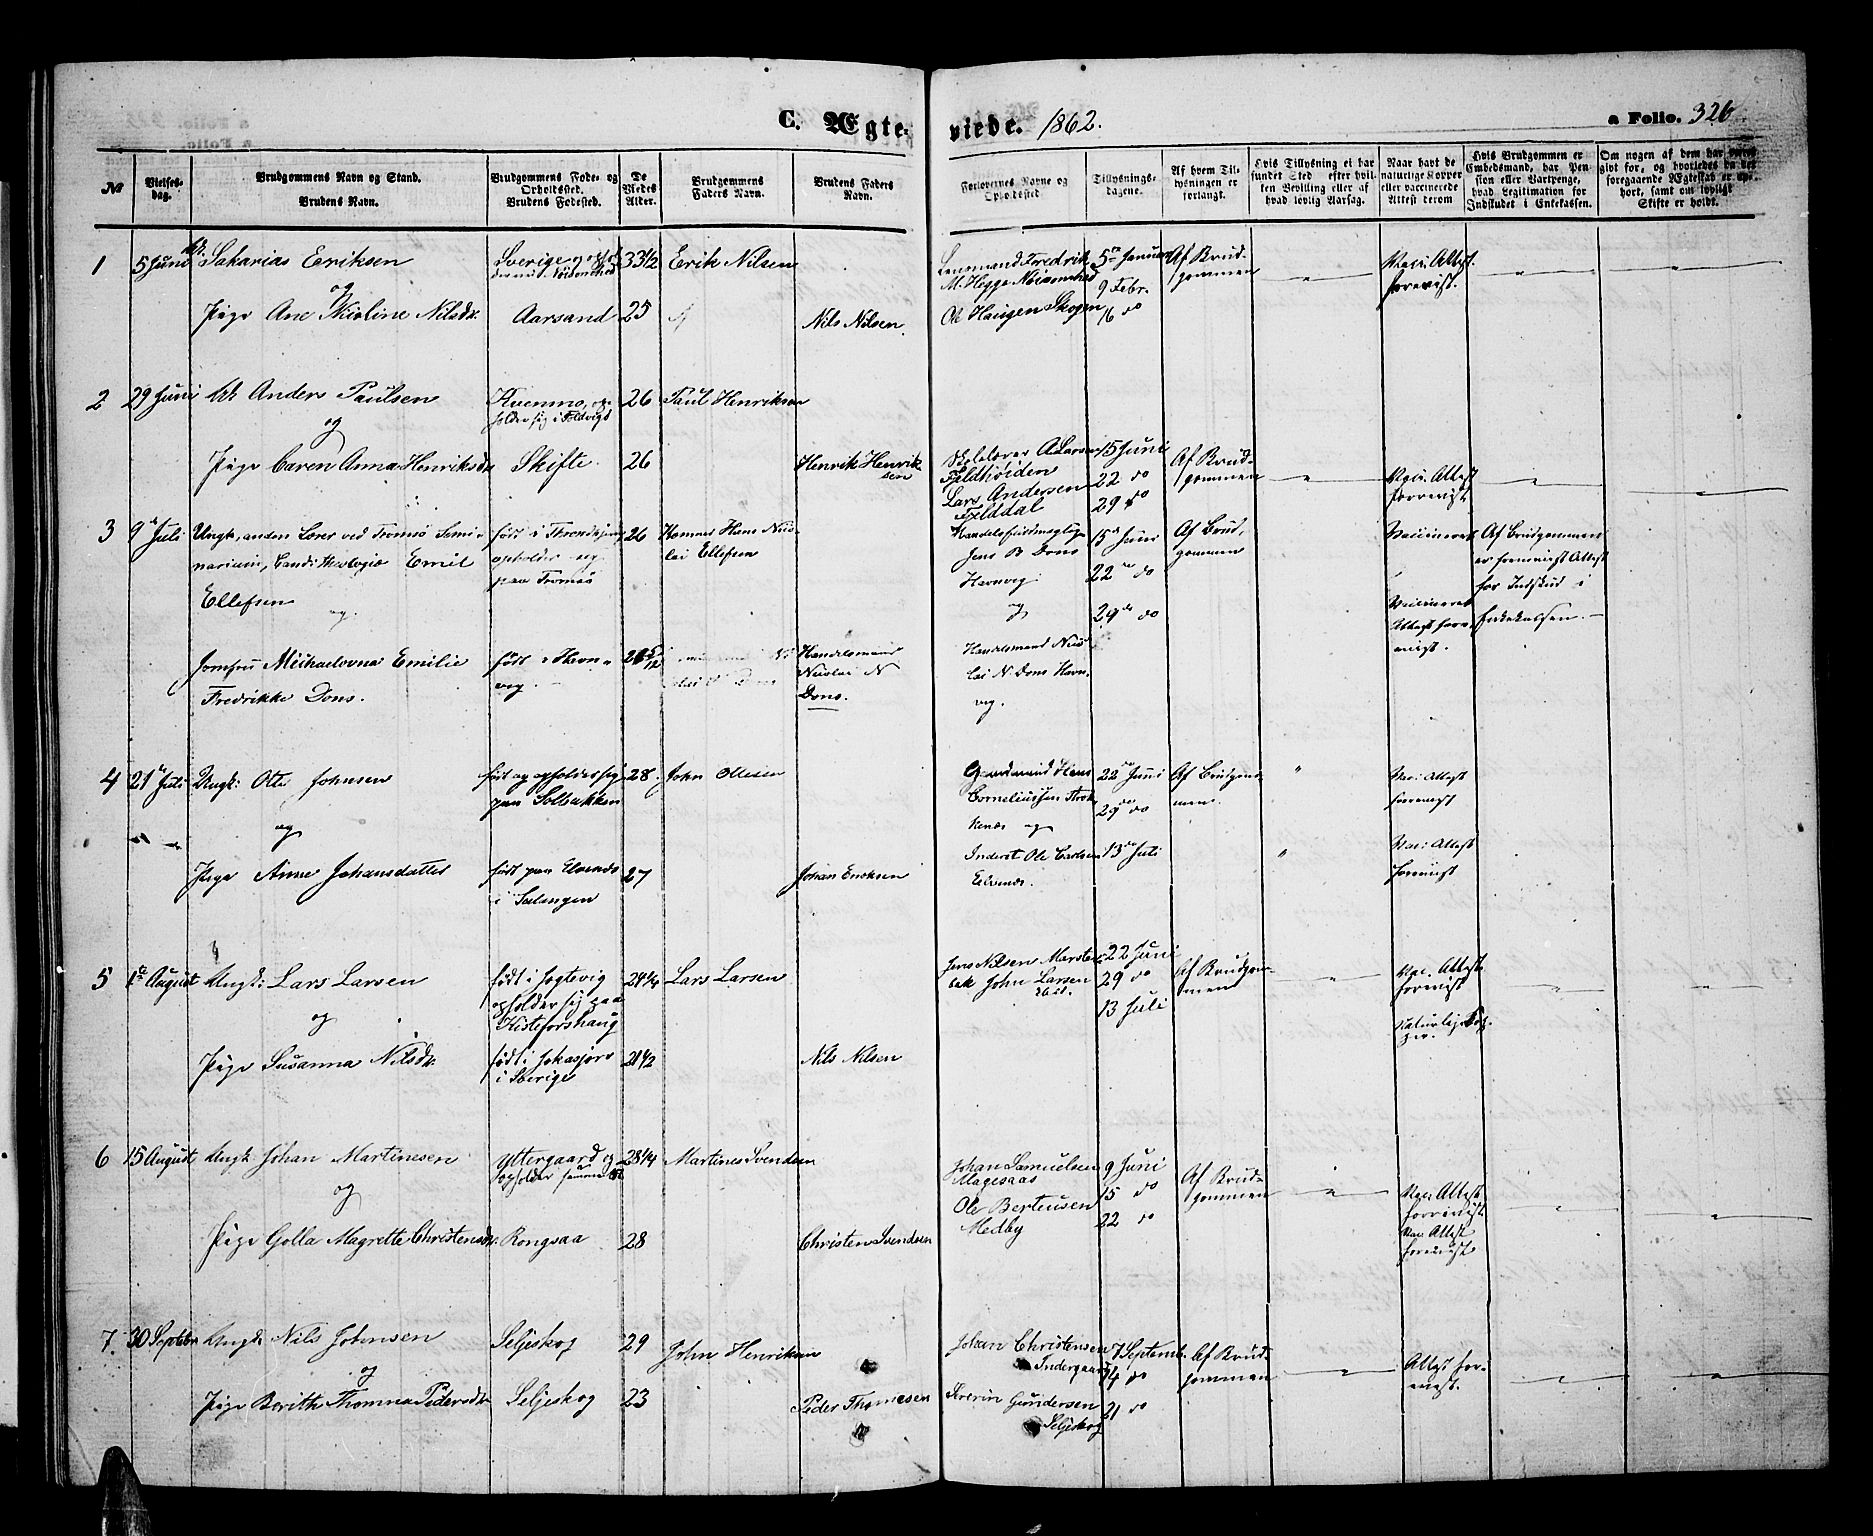 C. Ægte-
viede. 1862.
a Folio. 326
№
Vielses-
dag.
Brudgommens Navn og Stand.
Brudens Navn.
Brudgommens Føde- og
Opholdssted.
Brudens Fødested.
De
Viedes
Alder.
Brudgommens
Faders Navn.
Brudens Faders
Navn.
Forlovernes Navne og
Opholdssted
Tillysnings-
dagene.
Af hvem Til-
lysningen er
forlangt.
Hvis Tillysning ei har
fundet Sted efter hvil-
ken Bevilling eller af
hvad lovlig Aarsag.
Naar havt de
naturlige Kopper
eller vaccinerede
Attest derom
Hvis Brudgommen er
Embedsmand, har Pen-
sion eller Vartpenge,
hvad Legitimation for
Indskudet i Enkekassen.
Om nogen af dem har været
givt for, og hvorledes da det
foregaaende Ægteskab er op-
hørt, samt om lovligt
Skifte er holdt.
1
5 Juni
Sakarias Eriksen
og
Pige Ane Nicoline Nilsdr.
Sverige
Aarsand
33 1/2
25
Erik Nilsen
Nils Nilsen
Lensmand Fredrik
M. Hegge
Ole Haugen Skogen
5te Januar
9 Febr.
16 do
Af Brud-
gommen
Vacc. Attest
forevist.
2
29 Juni
Anders Paulsen
og
Pige Caren Anna Henriksdr
Kvenmo, op-
holder sig i Foldvigs
Skifte.
26
26
Paul Henriksen
Henrik Henrik-
sen
Skolelærer A Larsen
Fjeldhøiden
Lars Andersen
Fjelddal
15 Juni
22 do
29 do
Af Brud-
gommen
Vacc. Attest
forevist.
3
9 Juli
Ungk, anden Lærer ved Tromsø Semi-
narium, Candi theologiæ Emil
Ellefsen
og
Jomfru Michaelovna Emilie
Fredrikke Dons.
født i Throndhjem
opholder sig
paa Tromsø
født i Havn-
vig.
26
Hans Nico-
lai Ellefsen
Handelsmand
Nicolai N
Dons.
Jens B Dons
Havnvig
og
Handelsmand Nico-
lai N. Dons Havn-
vig.
15 Juni
22 do
29 do
Af Brud-
gommen
Vaccineret
Vaccineret
Attest fore-
vist.
Af Brudgommen
er forevist Attest
for Indskud i
Enkekassen.
4
21 Juli
Ungk: Ole Johnsen
og
Pige Anne Johansdatter
født og opholder sig
paa Solbakken
født paa Elvenes
i Salangen
28
27
John Olesen
Johan Enoksen
Gaardmand Hans
Corneliussen
og
Inderst Ole Carlsen
Elvenes.
22 Juni
29 do
13 Juli
Af Brudgom-
men.
Vac: Attest
forevist
Vac: Attest
forevist
5
1ste August
Ungk: Lars Larsen
og
Pige Susanna Nilsdr.
født i
opholder sig paa
Kisteforshaug
født i Jokasjorv
i Sverige
24 1/4
21 1/2
Lars Larsen
Nils Nilsen
Jens Nilsen
John Larsen
22 Juni
29 do
13 Juli
Af Brudgom-
men
Vac. Attest
forevist
naturlige Kop-
per.
6
15 August
Ungk: Johan Martinesen
og
Pige Golla Magrette Christensdr.
Yttergaard og
opholder samme
Rongsaa
28 1/4
28
Martines Svendsen
Christen Svendsen
Johan Samuelsen
Ole Berteusen
Medby
9 Juni
15 do
22 do
Af Brud-
gommen
Vac: Attest
forevist.
Vac: Attest
forevist
7.
30 Septbr
Ungk: Nils Johnsen
og
Pige Berith Thomna Pedersdr
Seljeskog
Seljeskog
29
23
John Henriksen
Peder Thomesen
Johan Christensen
Indergaard
Severin Gundersen
Seljeskog
7 Septemb.
14 do
21 do
Af Brud-
gommen
Attest fore-
vist.